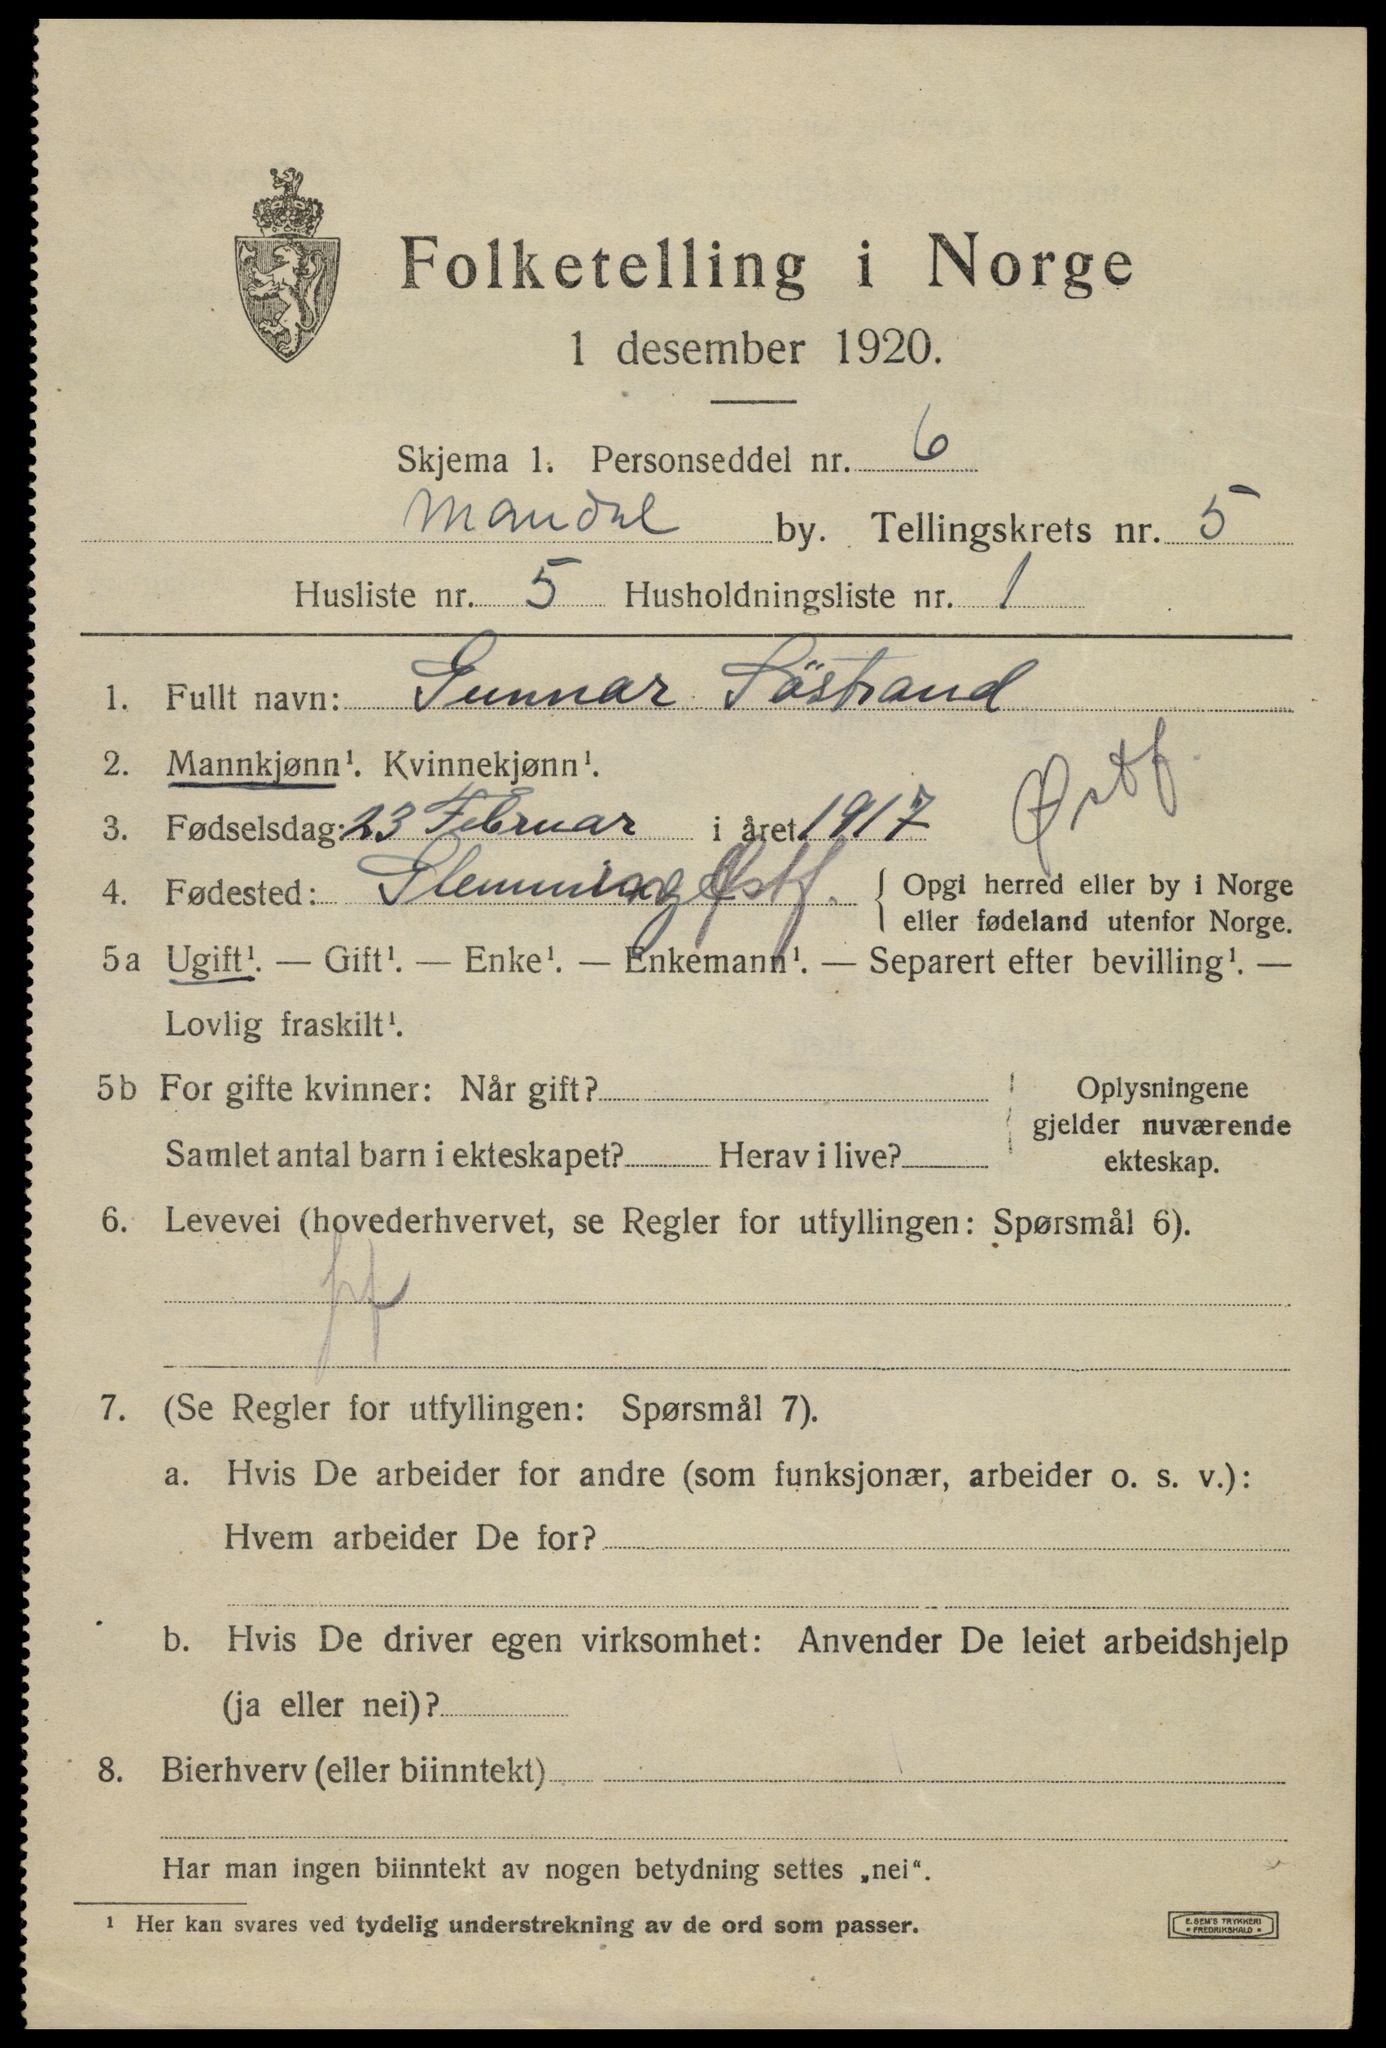 Folketelling i Norge
1 desember 1920.
Skjema 1. Personseddel nr. 6
Mandal by. Tellingskrets nr. 5
Husliste nr. 5 Husholdningsliste nr. 1
1. Fullt navn: Gunnar Söstrand
2. Mannkjønn¹. Kvinnekjønn¹.
Østf.
3. Fødselsdag: 23 Februar i året 1917
4. Fødested: Glemminge Østf. { Opgi herred eller by i Norge
eller fødeland utenfor Norge.
5a Ugift¹. — Gift¹. — Enke¹. — Enkemann¹. — Separert efter bevilling¹. —
Lovlig fraskilt¹.
5b For gifte kvinner: Når gift? Oplysningene
gjelder nuværende
Samlet antal barn i ekteskapet? Herav i live? ekteskap.
6. Levevei (hovederhvervet, se Regler for utfyllingen: Spørsmål 6).
7. (Se Regler for utfyllingen: Spørsmål 7).
a. Hvis De arbeider for andre (som funksjonær, arbeider o. s. v.):
Hvem arbeider De for?
b. Hvis De driver egen virksomhet: Anvender De leiet arbeidshjelp
(ja eller nei)?
8. Bierhverv (eller biinntekt)
Har man ingen biinntekt av nogen betydning settes „nei“.
¹ Her kan svares ved tydelig understrekning av de ord som passer.
E. SEM'S TRYKKERI
FREDRIKSHALD